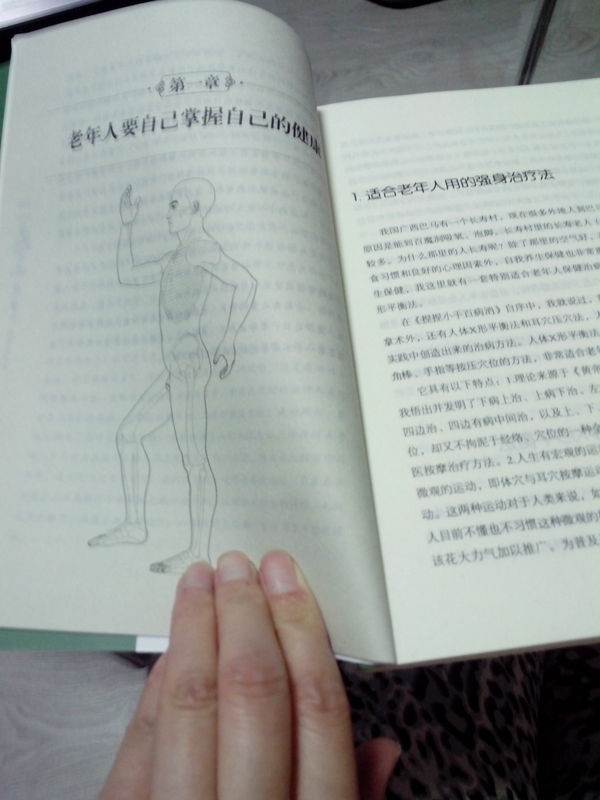 第一章
老年人要自己掌握自己的健康
1. 适合老年人用的强身治疗法
我国广西巴马有一个长寿村，现在很多外地人到巴马
原因是能到百魔洞吸氧、泡脚。长寿村里的长寿老人
较多。为什么那里的人长寿呢？除了那里的空气好，
食习惯和良好的心理因素外，自我养生保健也非常重
生保健，我这里就有一套特别适合老年人保健治病
形平衡法。
在《捏捏小手百病消》自序中，我就说过，
拿术外，还有人体X形平衡法和耳穴压穴法，人
实践中创造出来的治病方法。人体X形平衡法
角棒、手指等按压穴位的方法，非常适合老年
它具有以下特点：1.理论来源于《黄帝
我悟出并发明了下病上治、上病下治、左
四边治、四边有病中间治，以及上、下、
位，却又不拘泥于经络、穴位的一种全
医按摩治疗方法。2.人生有宏观的运
微观的运动，即体穴与耳穴按摩运动
动。这两种运动对于人类来说，如
人目前不懂也不习惯这种微观的
该花大力气加以推广。为普及